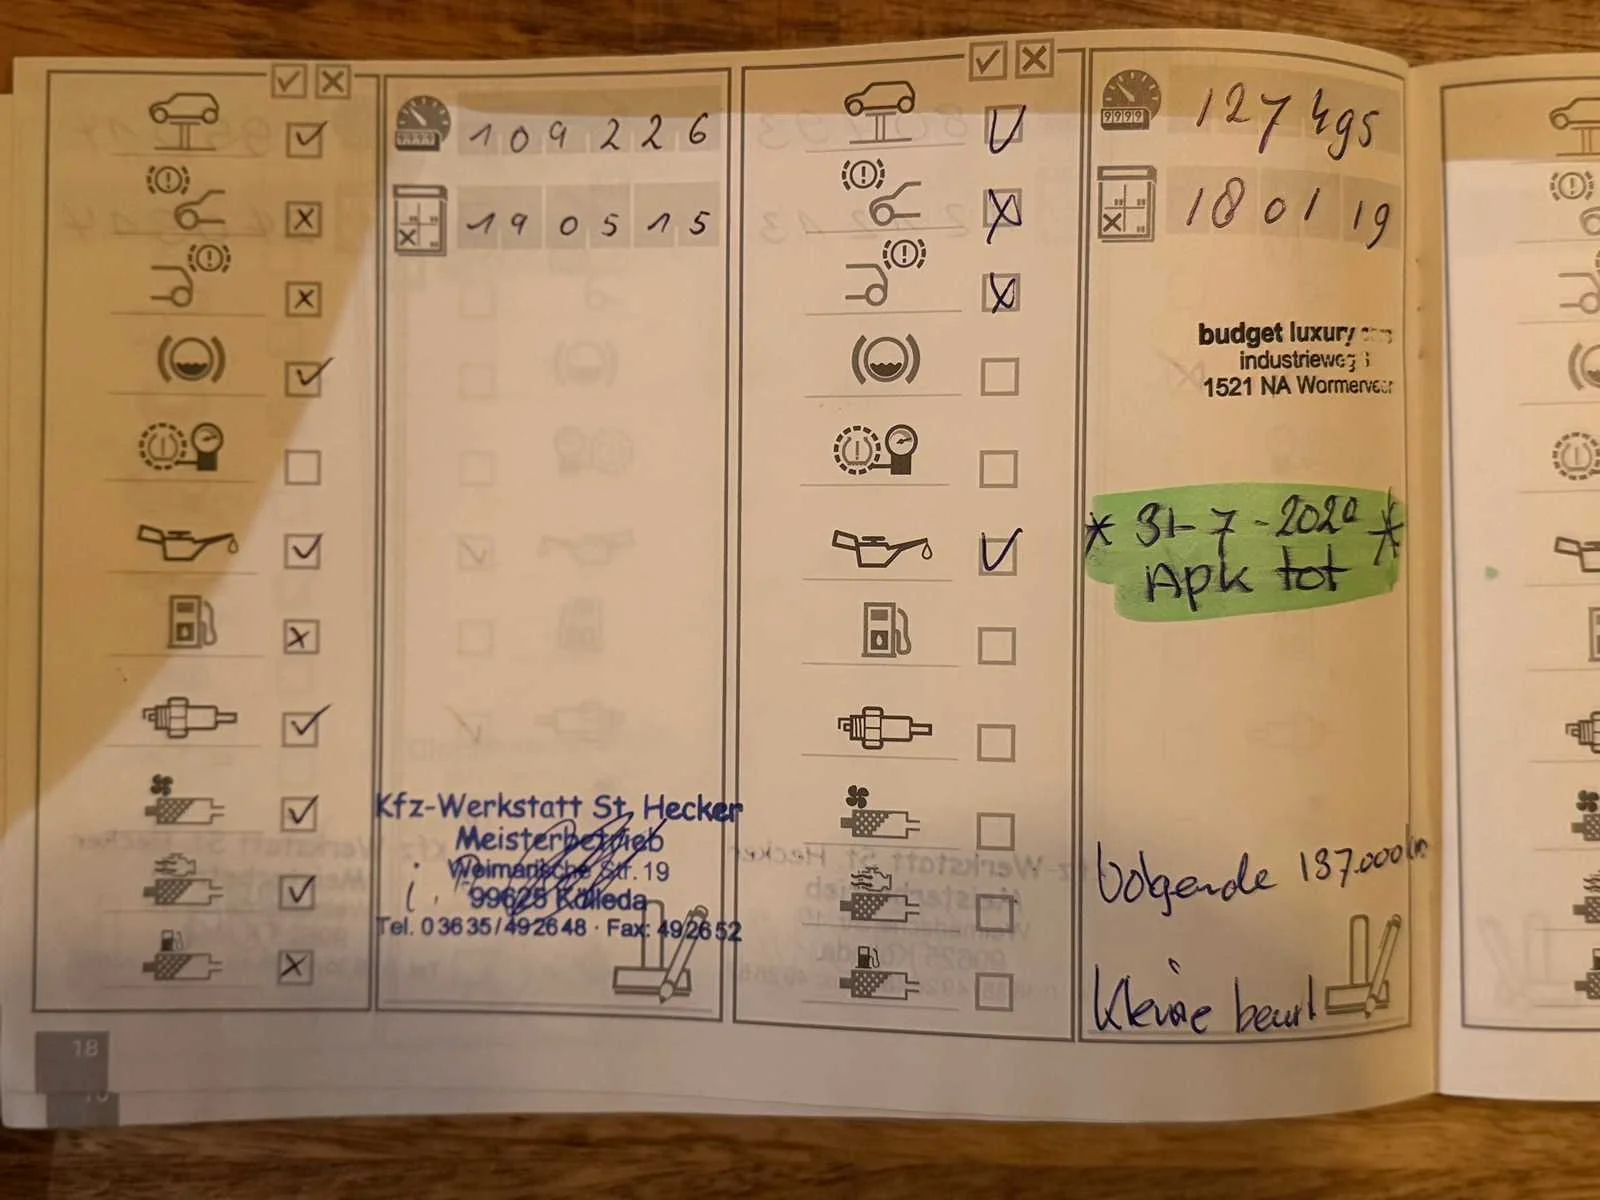 109226
9999
190515
Kfz-Werkstatt St. Hecker
Meisterbetrieb
Weimarische Str. 19
99625 Kölleda
Tel. 03635/492648 · Fax: 492652
127495
9999
180119
budget luxury
industrieweg
1521 NA Wormerveer
* 31-7-2020 *
Apk tot
Volgende 137.000km
Kleine beurt
18